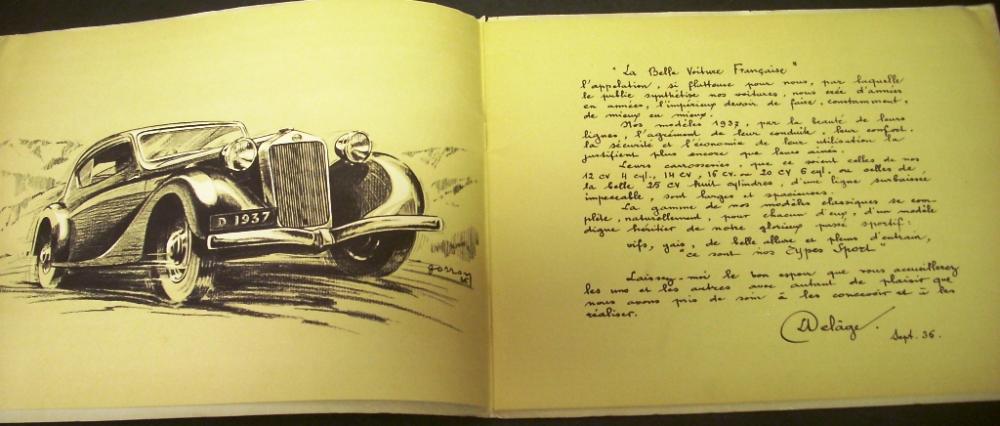 D 1937
Gorray
"La Belle Voiture Française"
l'appelation, si flatteuse pour nous, par laquelle
le public synthétise nos voitures, nous crée d'années
en années, l'impérieux devoir de faire, constamment,
de mieux en mieux.
Nos modèles 1937, par la beauté de leurs
lignes, l'agrément de leur conduite, leur confort,
la sécurité et l'économie de leur utilisation la
justifient plus encore que leurs aînés.
Leurs carrosseries, que ce soient celles de nos
12 CV 4 cyl., 14 CV, 16 CV. ou 20 CV 6 cyl. ou celles de
la belle 25 CV huit cylindres, d'une ligne surbaissée
impeccable, sont larges et spacieuses.
La gamme de nos modèles classiques se com-
plète, naturellement, pour chacun d'eux, d'un modèle
digne héritier de notre glorieux passé sportif:
vifs, gais, de belle allure et pleins d'entrain,
"ce sont nos Types Sport"
Laissez-moi le bon espoir que vous accueillerez
les uns et les autres avec autant de plaisir que
nous avons pris de soin à les concevoir et à les
réaliser.
Delâge.
Sept. 36.